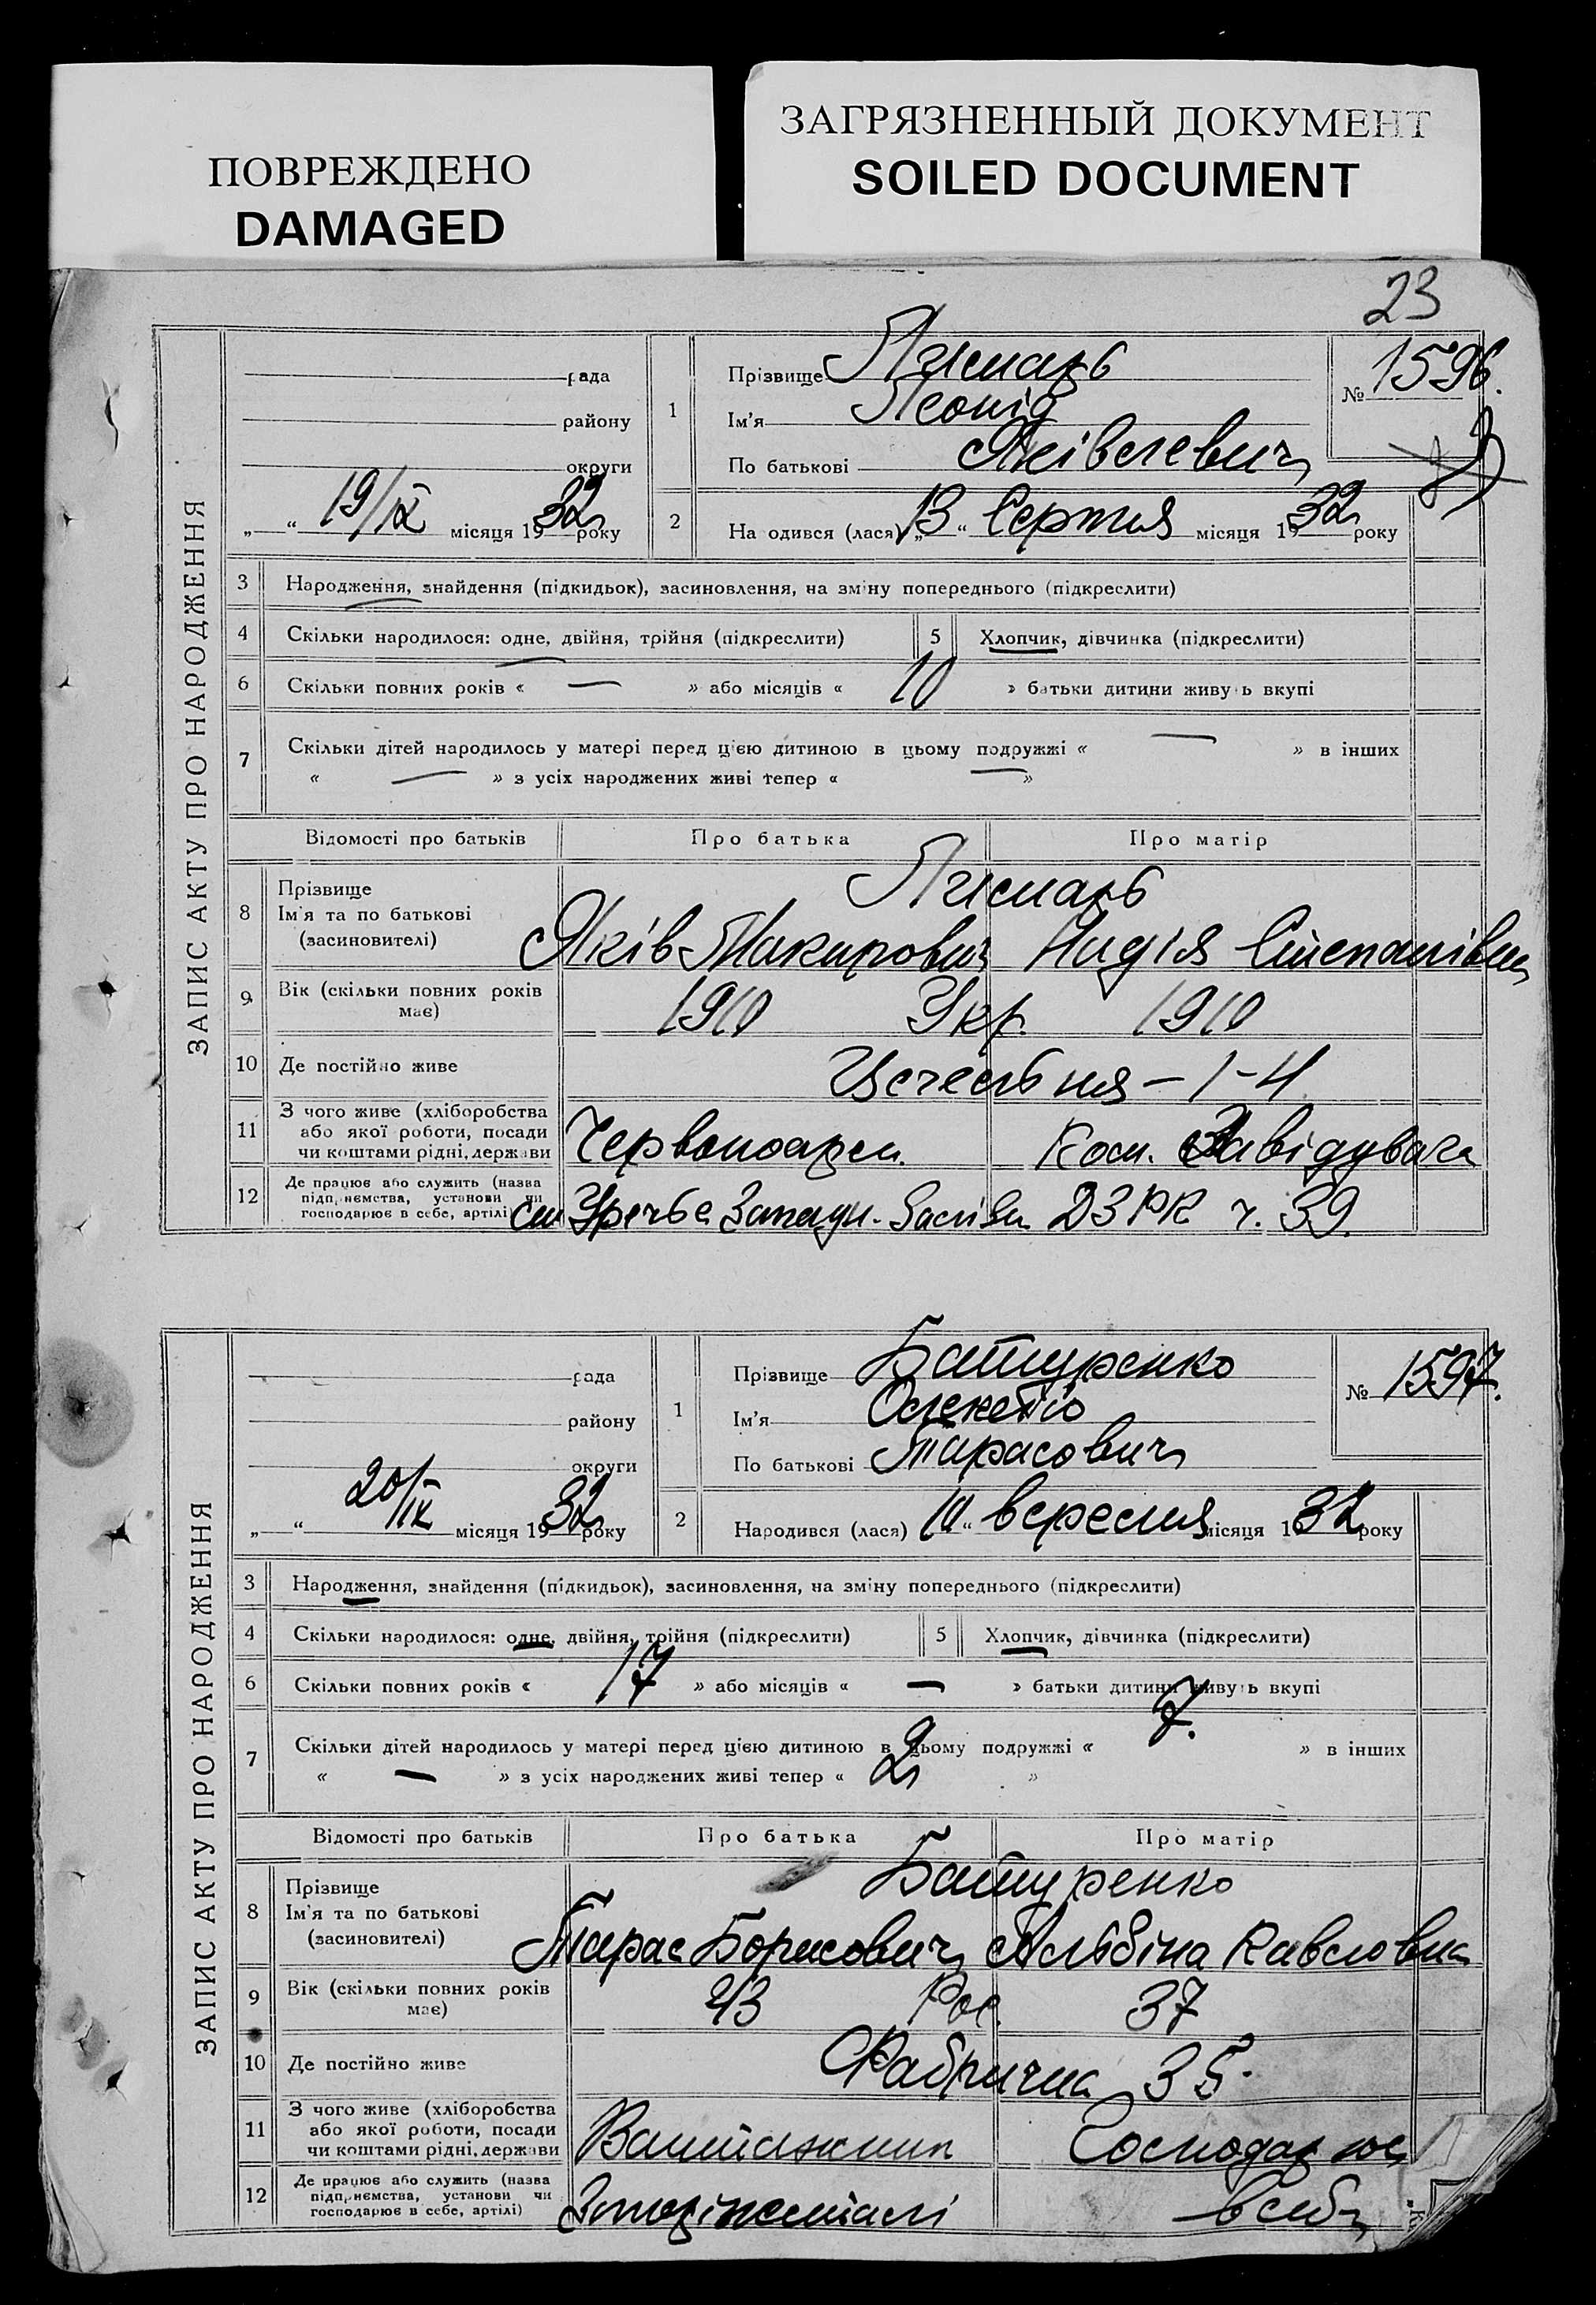 ПОВРЕЖДЕНО
DAMAGED
ЗАГРЯЗНЕННЫЙ ДОКУМЕНТ
SOILED DOCUMENT
23
ЗАПИС АКТУ ПРО НАРОДЖЕННЯ
рада
району
округи
„ “ 19/IX місяця 1932 року
1
Прізвище
Ім'я Леонід
По батькові Яківлевич
№ 1596.
2
На одився (лася) „13“ Серпня місяця 1932 року
3 Народження, знайдення (підкидьок), засиновлення, на зміну попереднього (підкреслити)
4 Скільки народилося: одне, двійня, трійня (підкреслити)
5 Хлопчик, дівчинка (підкреслити)
6 Скільки повних років « — » або місяців « 10 » батьки дитини живуть вкупі
7 Скільки дітей народилось у матері перед цією дитиною в цьому подружжі « — » в інших
« — » з усіх народжених живі тепер « — »
Відомості про батьків Про батька Про матір
8 Прізвище
Ім'я та по батькові
(засиновителі)
Яків Надія Степанівна
9 Вік (скільки повних років має) 1910 Укр. 1910
10 Де постійно живе 1-4
11 З чого живе (хліборобства
або якої роботи, посади
чи коштами рідні, держави
Червоноарм. Завідувача
12 Де працює або служить (назва
підприємства, установи чи
господарює в себе, артілі)
ч. 39.
ЗАПИС АКТУ ПРО НАРОДЖЕННЯ
рада
району
округи
„ “ 20/IX місяця 1932 року
1
Прізвище Батуренко
Ім'я
По батькові Тарасович
№ 1597.
2
Народився (лася) 10“ вересня місяця 1932 року
3 Народження, знайдення (підкидьок), засиновлення, на зміну попереднього (підкреслити)
4 Скільки народилося: одне, двійня, трійня (підкреслити)
5 Хлопчик, дівчинка (підкреслити)
6 Скільки повних років « 17 » або місяців « — » батьки дитини живуть вкупі
7 Скільки дітей народилось у матері перед цією дитиною в цьому подружжі « 7. » в інших
« — » з усіх народжених живі тепер « 2 »
Відомості про батьків Про батька Про матір
8 Прізвище
Ім'я та по батькові
(засиновителі)
Батуренко
Тарас Борисович Альбіна
9 Вік (скільки повних років має) 43 Рос. 37
10 Де постійно живе Фабрична 35.
11 З чого живе (хліборобства
або якої роботи, посади
чи коштами рідні, держави
Вантажник Господарює
12 Де працює або служить (назва
підприємства, установи чи
господарює в себе, артілі)
Запоріжсталі в себе